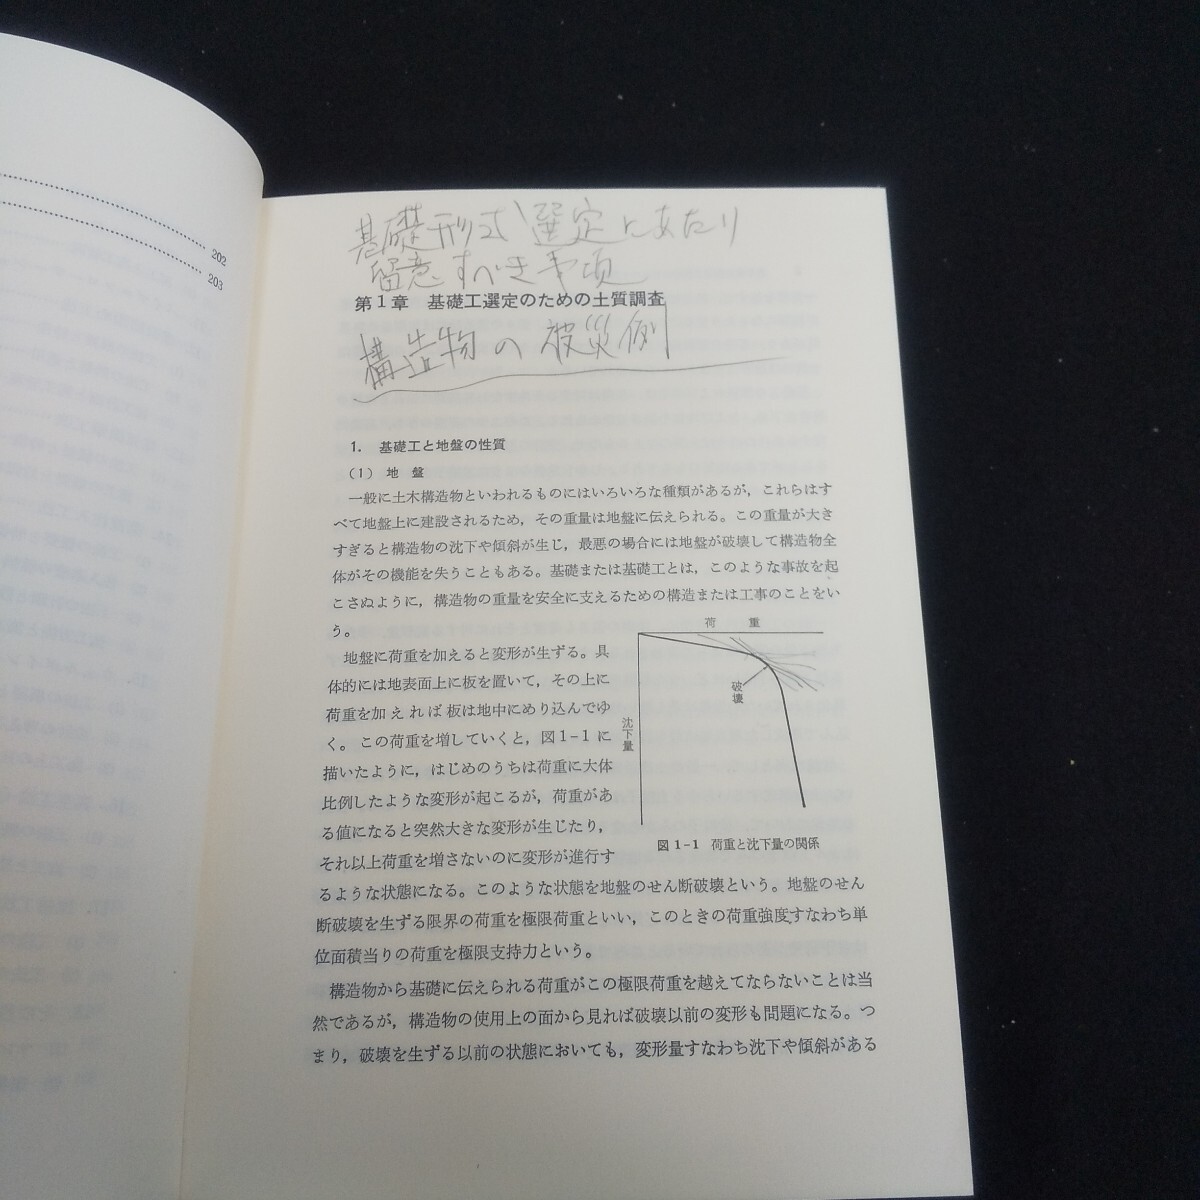 202
203
基礎形式選定にあたり
留意すべき事項
第1章　基礎工選定のための土質調査
構造物の被災例
1.　基礎工と地盤の性質
(1)　地　盤
一般に土木構造物といわれるものにはいろいろな種類があるが，これらはす
べて地盤上に建設されるため，その重量は地盤に伝えられる。この重量が大き
すぎると構造物の沈下や傾斜が生じ，最悪の場合には地盤が破壊して構造物全
体がその機能を失うこともある。基礎または基礎工とは，このような事故を起
こさぬように，構造物の重量を安全に支えるための構造または工事のことをい
う。
地盤に荷重を加えると変形が生ずる。具
体的には地表面上に板を置いて，その上に
荷重を加えれば板は地中にめり込んでゆ
く。この荷重を増していくと，図1-1に
描いたように，はじめのうちは荷重に大体
比例したような変形が起こるが，荷重があ
る値になると突然大きな変形が生じたり，
それ以上荷重を増さないのに変形が進行す
るような状態になる。このような状態を地盤のせん断破壊という。地盤のせん
断破壊を生ずる限界の荷重を極限荷重といい，このときの荷重強度すなわち単
位面積当りの荷重を極限支持力という。
構造物から基礎に伝えられる荷重がこの極限荷重を越えてならないことは当
然であるが，構造物の使用上の面から見れば破壊以前の変形も問題になる。つ
まり，破壊を生ずる以前の状態においても，変形量すなわち沈下や傾斜がある
荷　重
破壊
沈下量
図1-1　荷重と沈下量の関係